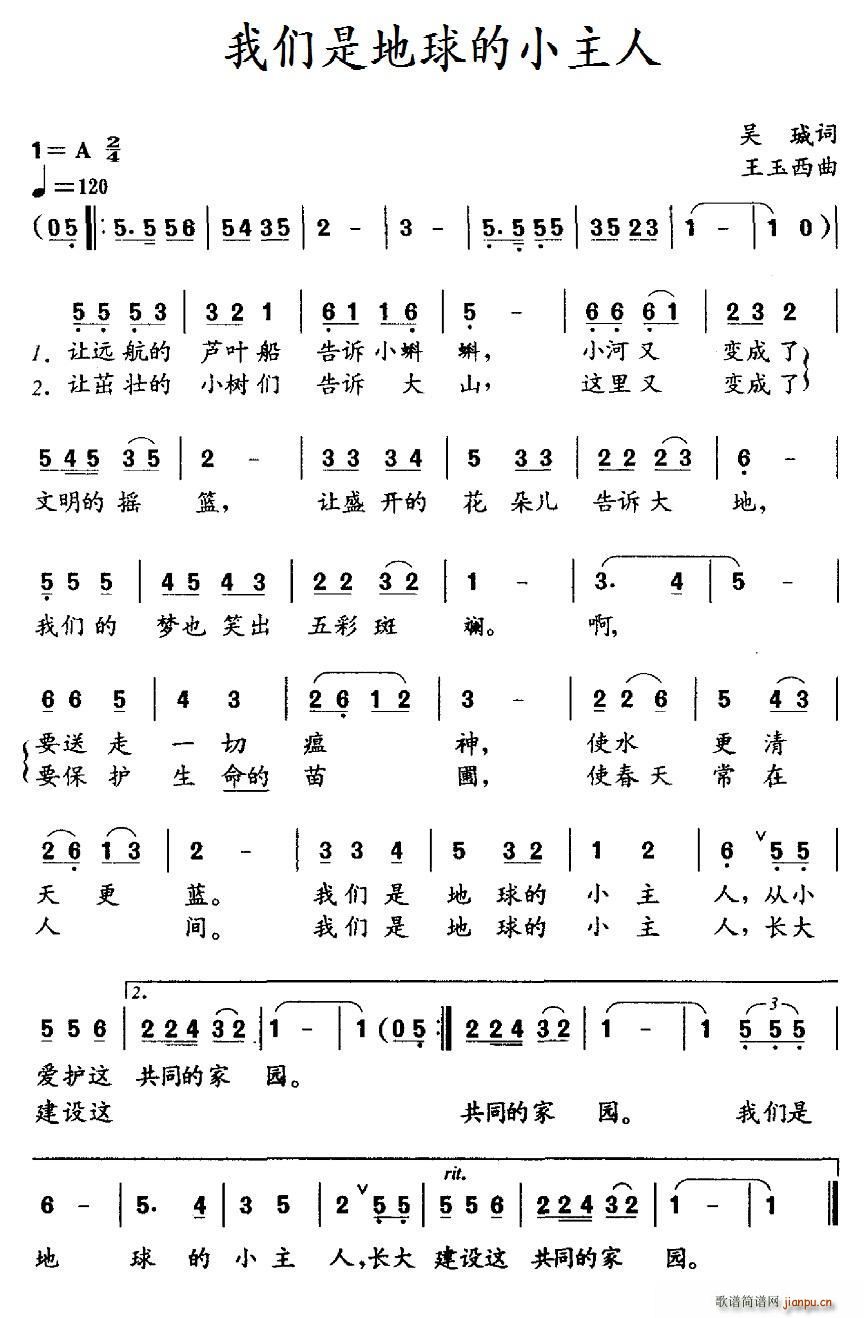 我们是地球的小主人
吴 珹词
1= A 2/4
王玉西曲
♩=120
(05 ‖: 5. 5 556 | 5435 | 2 - | 3 - | 5. 5 55 | 3523 | 1 - | 1 0)|
55 53 | 32 1 | 61 16 | 5 - | 66 61 | 23 2 |
1. 让远航的 芦叶船 告诉小蝌 蝌, 小河又 变成了
2. 让茁壮的 小树们 告诉 大 山, 这里又 变成了
545 35 | 2 - | 33 34 | 5 33 | 22 23 | 6 - |
文明的摇 篮, 让盛开的 花 朵儿 告诉大 地,
5 5 5 | 45 43 | 22 32 | 1 - | 3. 4 | 5 - |
我们的 梦也笑出 五彩斑 斓。 啊,
66 5 | 4 3 | 2612 | 3 - | 22 6 | 5 43 |
要送走 一切 瘟 神, 使水 更清
要保护 生命的 苗 圃, 使春天 常在
26 13 | 2 - | 33 4 | 5 32 | 1 2 | 6 ∨ 55 |
天 更 蓝。 我们是 地 球的 小 主 人, 从小
人 间。 我们是 地 球的 小 主 人, 长大
2.
55 6 | 224 32 | 1 - | 1 (05 :‖ 224 32 | 1 - | 1 3 555 |
爱护这 共同的家 园。
建设这 共同的家 园。 我们是
rit.
6 - | 5. 4 | 3 5 | 2 ∨ 55 | 55 6 | 224 32 | 1 - | 1 ‖
地 球 的 小 主 人, 长大 建设这 共同的家 园。
歌谱简谱网
jianpu.cn